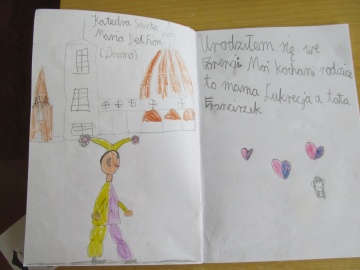 Katedra Santa
Maria Del Fiore
(Duomo)
Urodziłem się we
Florencji Moi kochani rodzice
to mama Lukrecja a tata
Franciszek